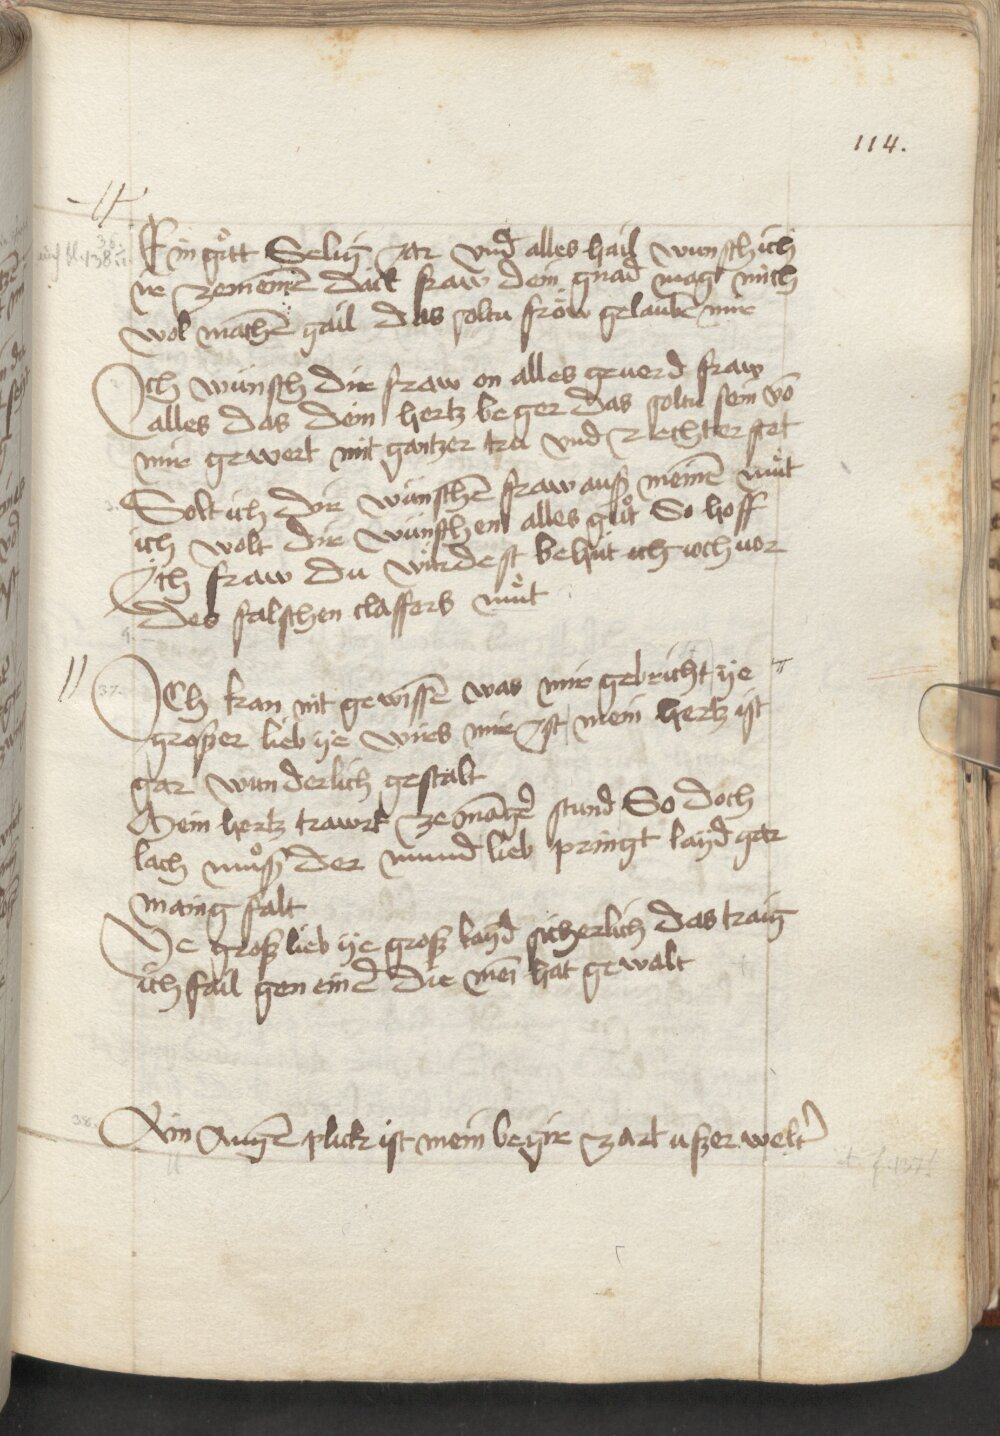 114.
Ein gůtt Selig Jar vnd alles hail wunsch ich
ir zemēmē dāck fraw dein gnad magt mich
wol machē gail das soltu fröw gelaube mir
Ich wünsch dir fraw on alles geuerd fraw
alles das dein hertz beger das soltu sein vō
mir gewert mit gantzer tru vnd rechter art
Solt ich dir wünschē fraw auß meinē můt
ich wolt dir wünschen alles gůt So hoff
Ich fraw du würdest behüt ich och uor
des falschen claffers můt
37. Ich kan nit gewissē was mir gebricht ye
grosser lieb ye wirs mir Ist mein hertz ist
gar wunderlich gestalt
Mein hertz trawrt ze māger stund So doch
lach můß der mund lieb pringt layd gar
maing falt
Ye groß lieb ye groß layd sicherlich das traig
ich fail gen einer die mei hat gewalt
38. Ain Augē plick ist mein begir zart usserwelt